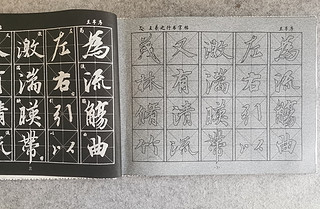 兰亭序
為流觴曲
左右引以
激湍暎帶
又有清流
王羲之行书字帖
兰亭序
為流觴曲
左右引以
激湍暎帶
又有清流
茂林脩竹